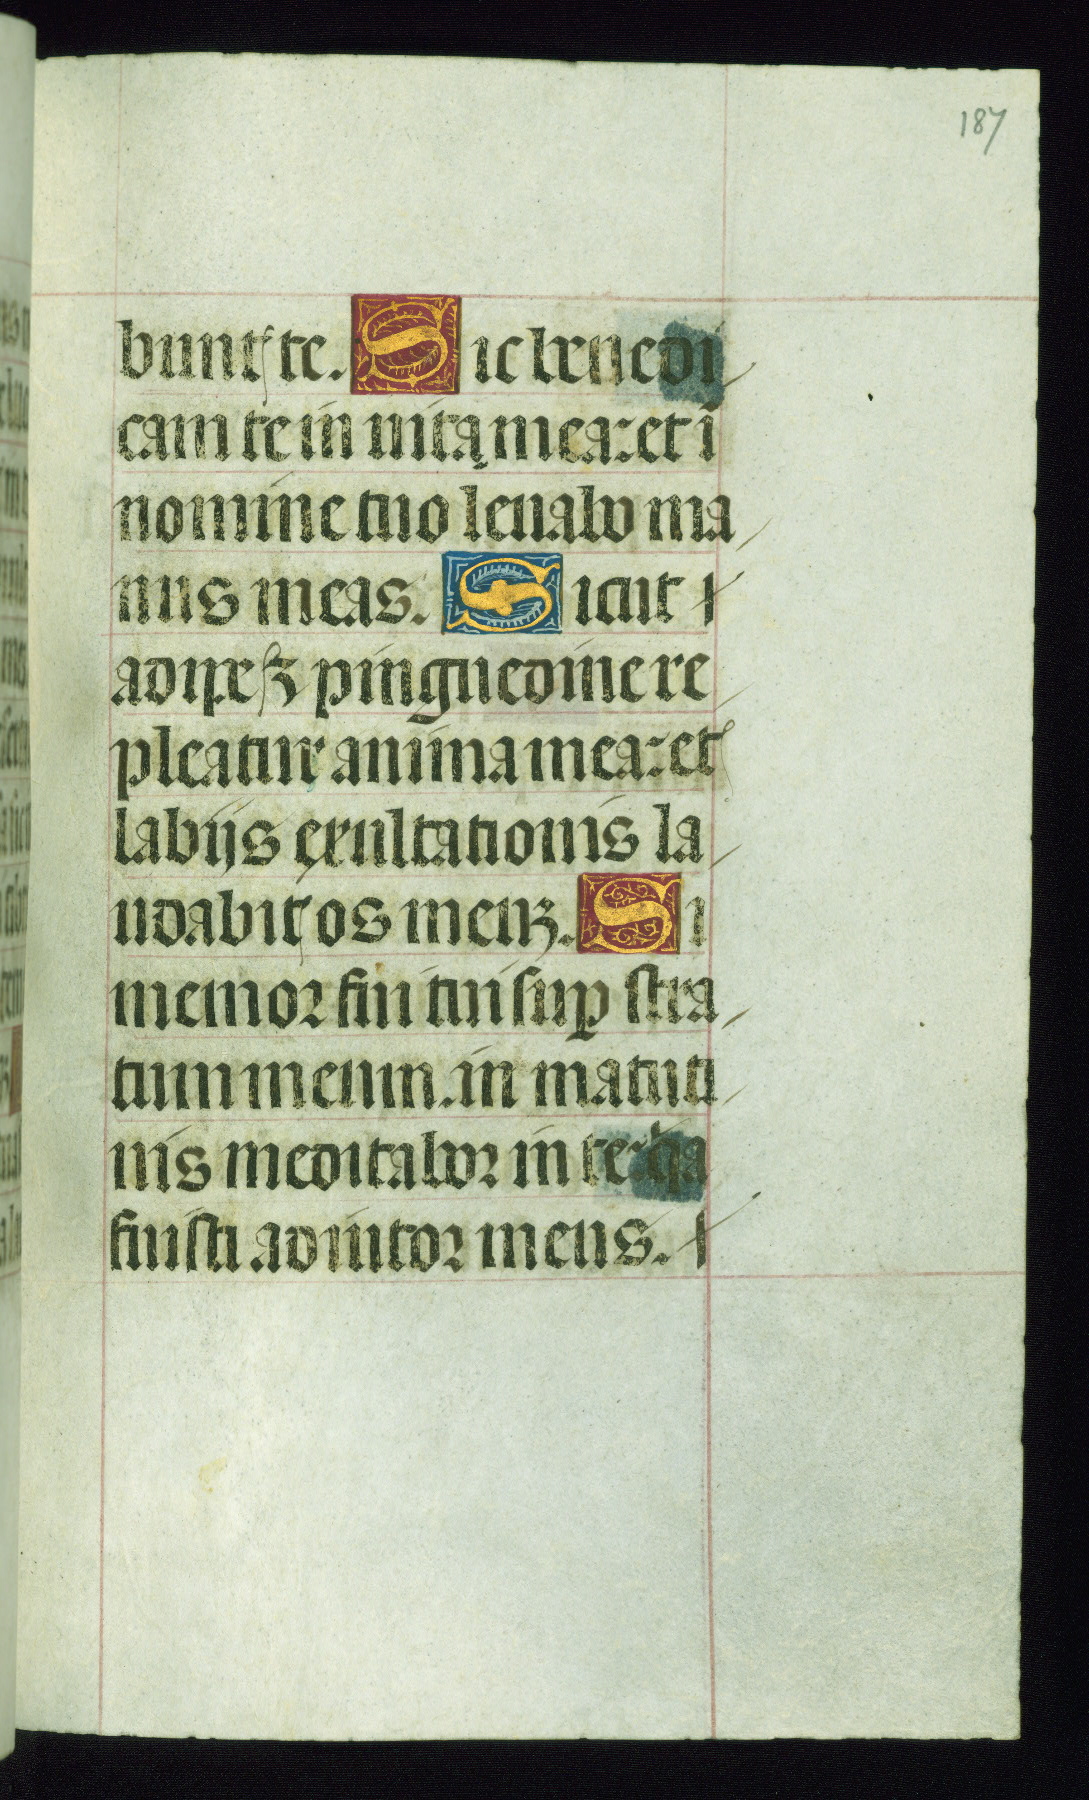 187
bunt te. Sic benedi
cam te in uita mea: et ī
nomine tuo leuabo ma
nus meas. Sicut
adipe ꝫ pinguedine re
pleatur anima mea: et
labijs exultationis la
udabit os meuꝫ. Si
memor fui tui suꝑ stra
tum meum. in matuti
nis meditabor in te: q̄a
fuisti adiutor meus.